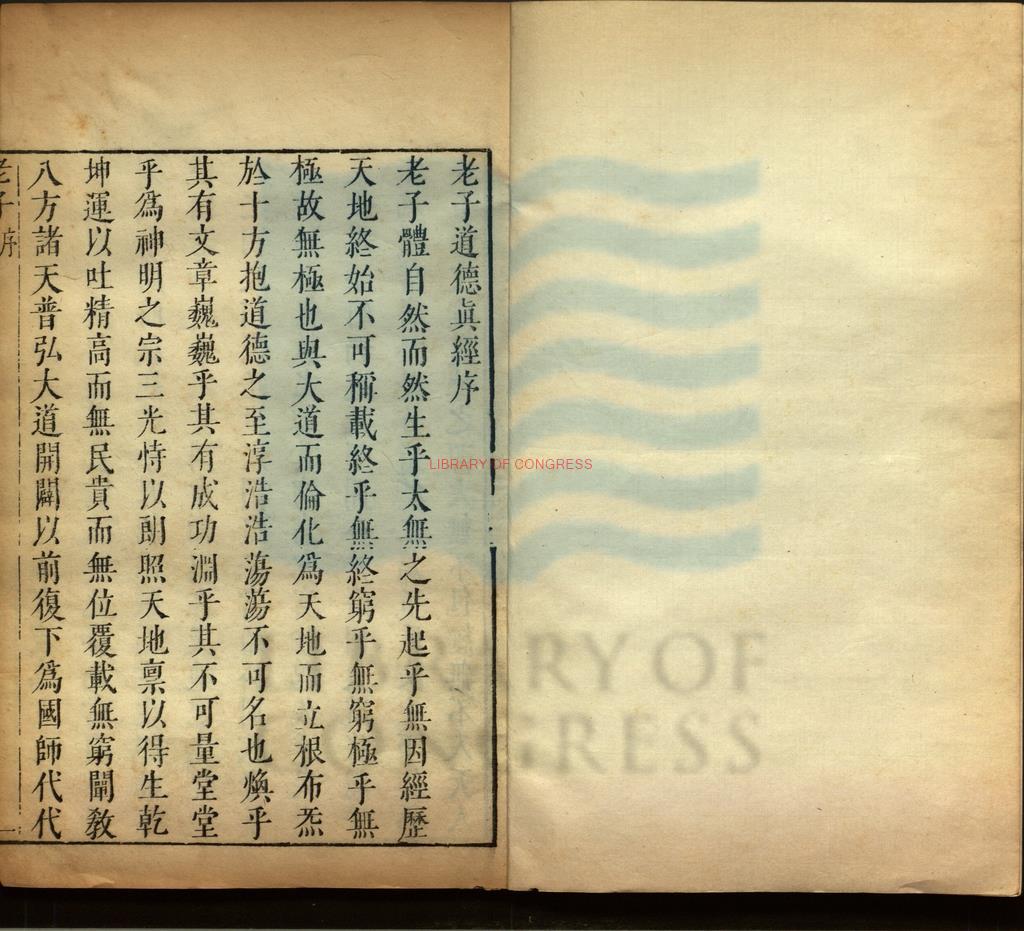 老子道德眞經序
老子體自然而然生乎太無之先起乎無因經歷
天地終始不可稱載終乎無終窮乎無窮極乎無
極故無極也與大道而倫化爲天地而立根布炁
於十方抱道德之至淳浩浩蕩蕩不可名也煥乎
其有文章巍巍乎其有成功淵乎其不可量堂堂
乎爲神明之宗三光恃以朗照天地禀以得生乾
坤運以吐精高而無民貴而無位覆載無窮闡敎
八方諸天普弘大道開闢以前復下爲國師代代
老子 序
一
LIBRARY OF CONGRESS
LIBRARY OF
CONGRESS